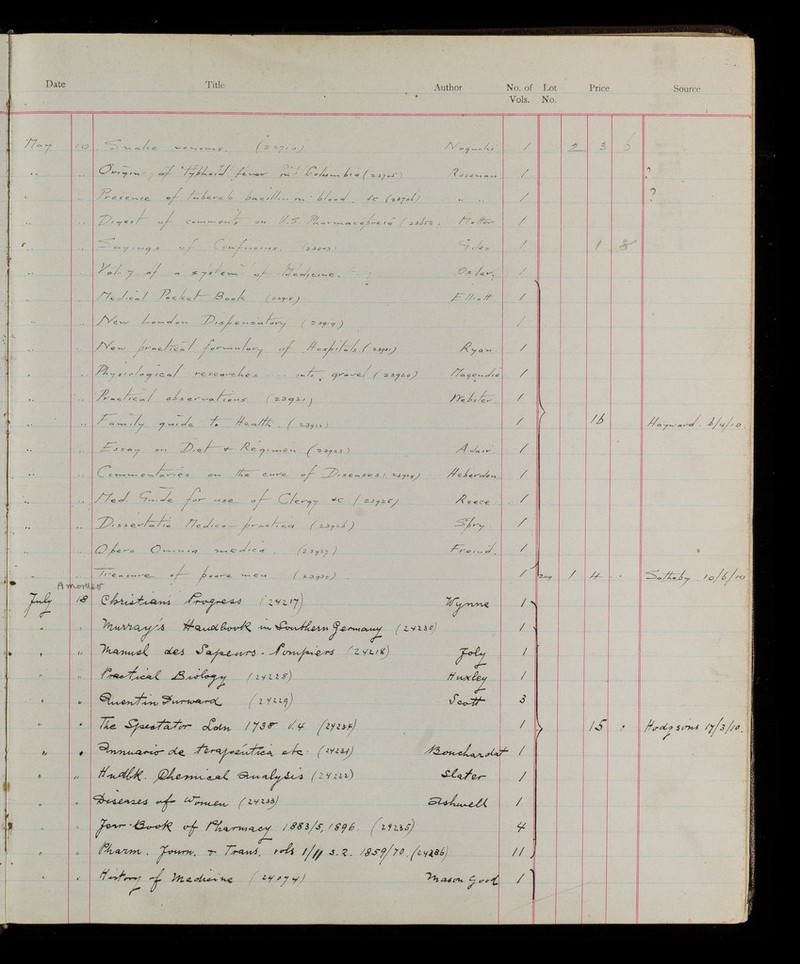 Date Title Author No. of Vols. Lot No. Price Source
May 10 Snake venoms. (23710) Noguchi 1 2 3 6
" " Origin of Typhoid fever in Columbia (23705) Rosenau 1 ?
" " Presence of tubercle bacilli in blood. &c (23706) " " 1 ?
" " Digest of comments on U.S. Pharmacopoeia Motter 1
" " Sayings of Confucius. Giles 1 1 8
" " Vol. 7 of a system of Medicine. Osler, 1
" " Medical Pocket Book Elliott 1
" " New London Dispensatory (23919) 1
" " New practical formulary of Hospitals. Ryan 1
" " Physiological researches into gravel (23920) Magendie 1
" " Practical observations (23921) Webster 1
" " Family guide to Health. 1 16 Hayward. 6/4/10.
" " Essay on Diet & Regimen (23923) Adair 1
" " Commentaries on the cure of Diseases Heberden 1
" " Med. Guide for use of Clergy &c (23925) Reece 1
" " Dissertatio Medico-practica (23926) Spry 1
" " Opera Omnia medica. (23927) Freind. 1
" " Treasure of poore men 1 1 4 " " Sotheby 10/6/10
Amorous
July 18 Christian's Progress (24217) Wynne 1
" " Murray's Handbook in Southern Germany (24230) 1
" " Manuel des Sapeurs-Pompiers (24218) Joly 1
" " Practical Biology (24228) Huxley 1
" " Quentin Durward (24229) Scott 3
" " The Spectator Lodn 1738 V.4 1 15 " Hodgsons 17/3/10.
" " Annuario de terapeutica etc. Bouchardat 1
" " Hndbk. Chemical Analysis (24222) Slater 1
" " Diseases of Women (24233) Ashwell 1
" " Year-Book of Pharmacy 1883/5, 1896. (24235) 4
" " Pharm. Journ. & Trans. vols 1/11 s.2. 1859/70. (24236) 11
" " History of Medicine (24074) Mason Good 1